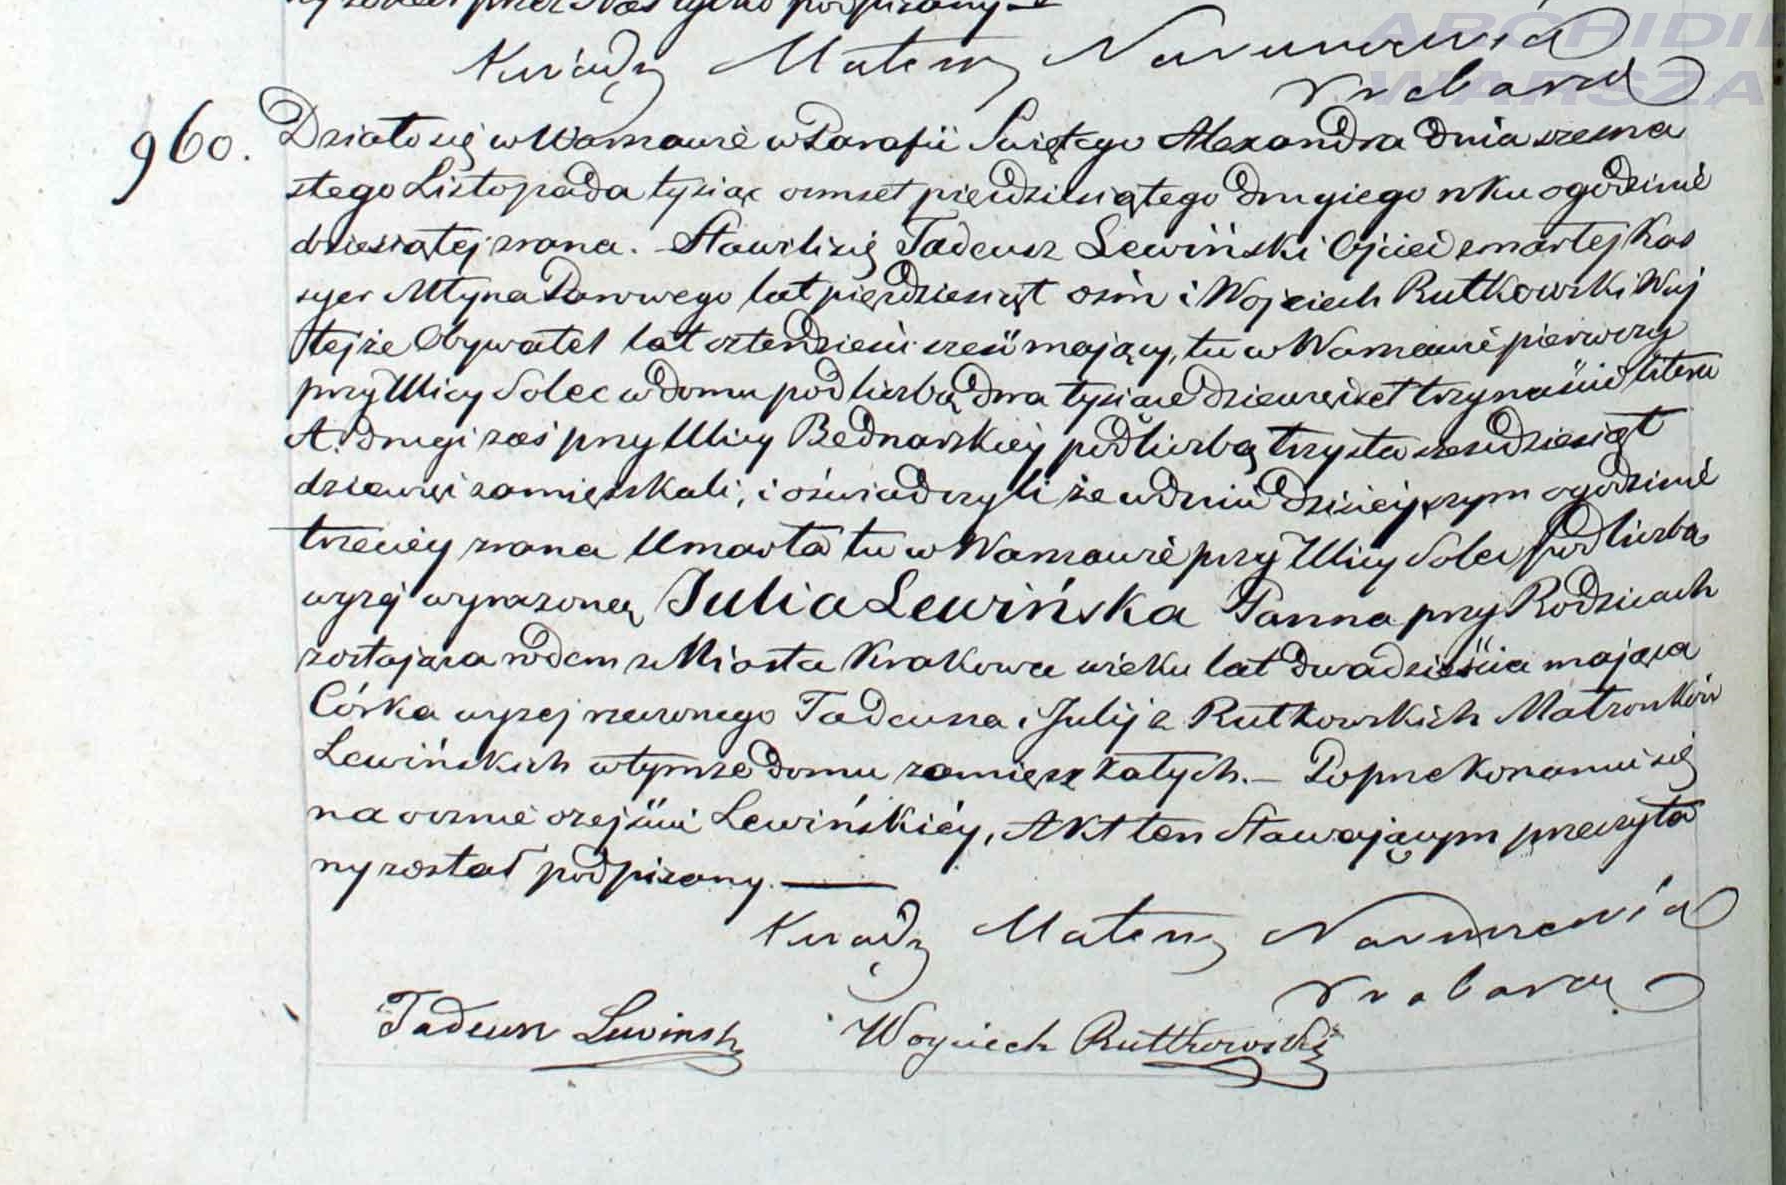 ny został przez Nas tylko podpisany
Xiądz Mateusz
ARCHIDI
WARSZA
960. Działo się w Warszawie w Parafii Świętego Alexandra dnia szesna
stego Listopada tysiąc ośmset pięćdziesiątego drugiego roku o godzinie
dziesiątej zrana. Stawili się Tadeusz Lewiński Ojciec zmarłej Kas
syer Młyna Parowego lat pięćdziesiąt ośm i Wojciech Rutkowski Wuj
tejże Obywatel lat czterdzieści sześć mający, tu w Warszawie pierwszy
przy Ulicy Solec w domu pod liczbą dwa tysiące dziewięćset trzynaście litera
A. drugi zaś przy Ulicy Bednarskiey pod liczbą trzysta sześćdziesiąt
dziewięć zamięszkali, i oświadczyli że w dniu dzisieyszym o godzinie
trzeciey zrana Umarła tu w Warszawie przy Ulicy Solec pod liczbą
wyżej wyrażoną Julia Lewińska Panna przy Rodzicach
zostająca rodem z Miasta Krakowa wieku lat dwadzieścia mająca
Córka wyżej rzeczonego Tadeusza i Julij z Rutkowskich Małżonków
Lewińskich w tymże domu zamięszkałych. — Po przekonaniu się
na ocznie o zejściu Lewińskiéy, Akt ten Stawającym przeczyta
ny został podpisany. —
Xiądz Mateusz
Tadeusz Lewiński Woyciech Rutkowski